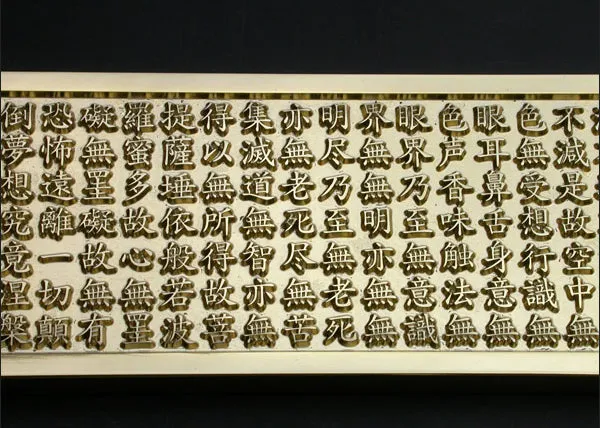 不減是故空中無
色無受想行識無
眼耳鼻舌身意無
色声香味触法無
眼界乃至無意識
界無無明亦無無
明尽乃至無老死
亦無老死尽無苦
集滅道無智亦無
得以無所得故菩
提薩埵依般若波
羅蜜多故心無罣
礙無罣礙故無有
恐怖遠離一切顛
倒夢想究竟涅槃